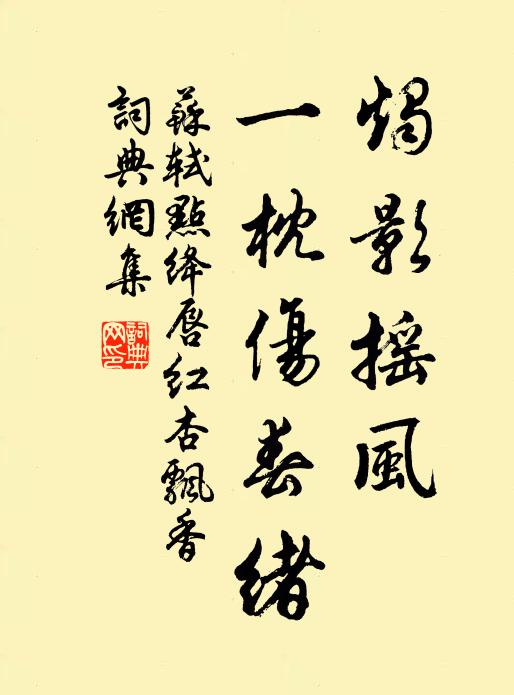 燭影搖風
一枕傷春緒
蘇軾點絳唇紅杏飄香
詞典網集
詞典
網印